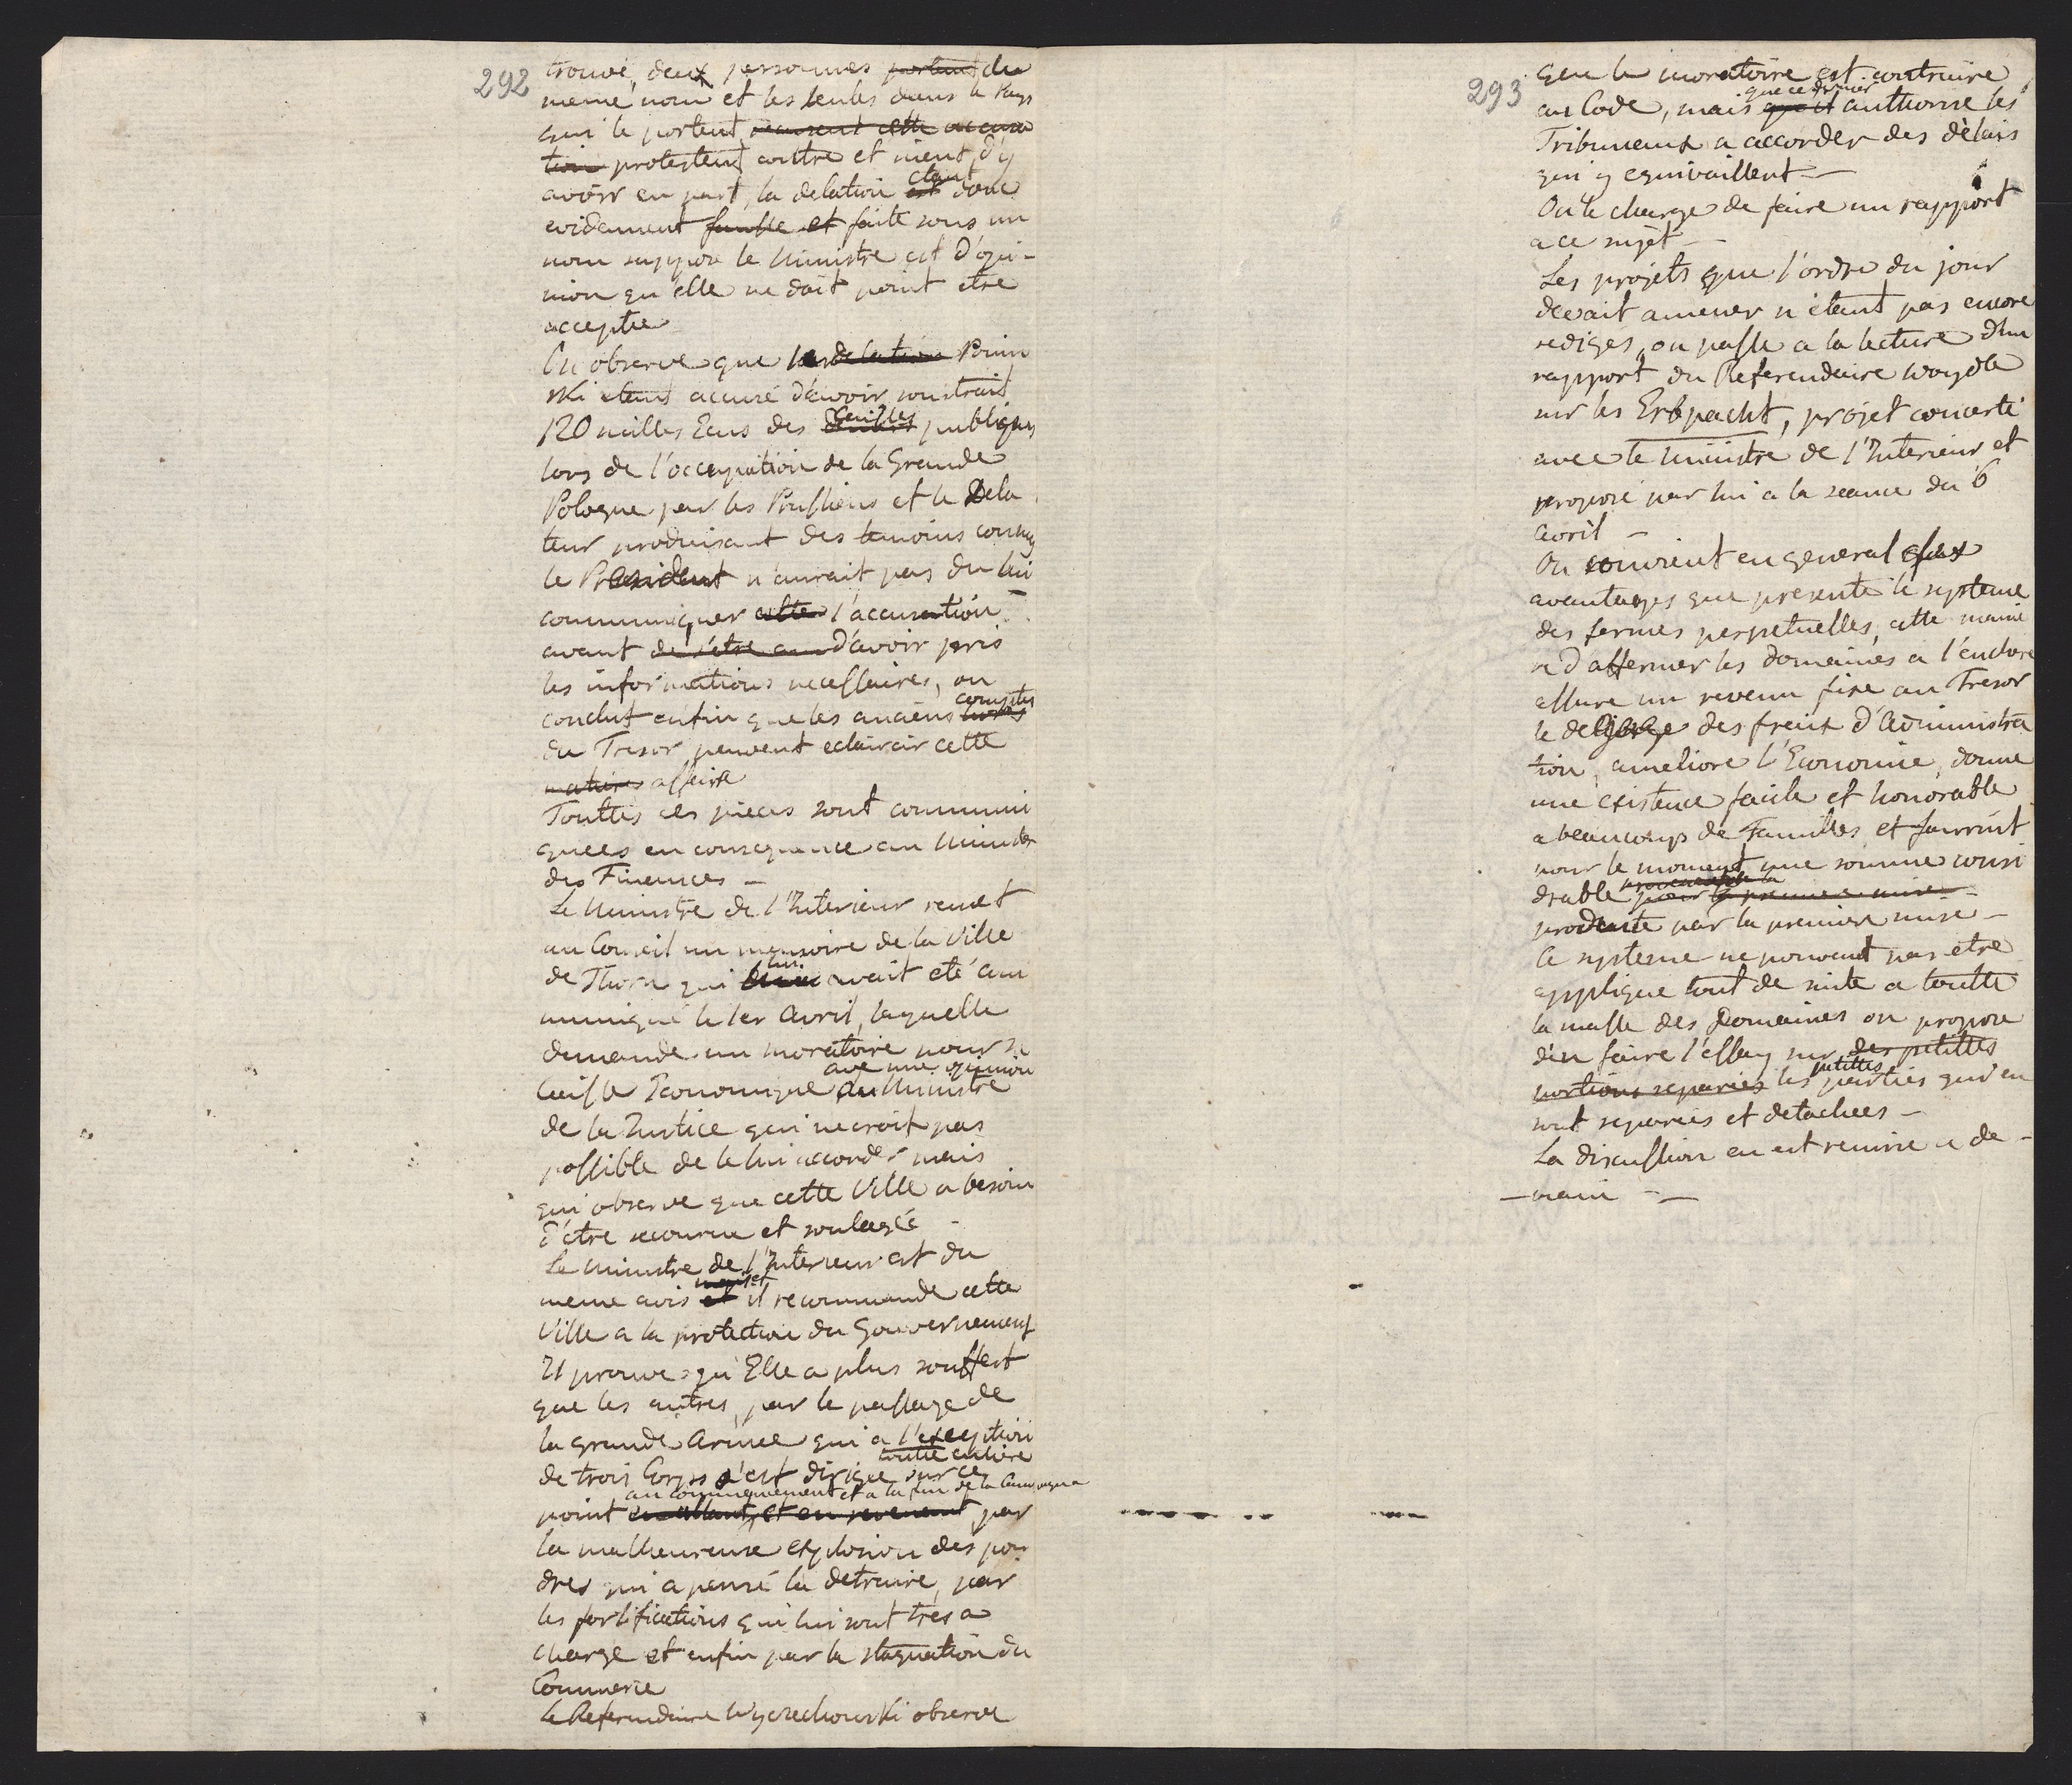 292
trouvé, deux personnes portant du
meme nom et les seules dans le Pays
qui le portent recusent cette accusa
tion protestent contre et nient d'y
avoir eu part, la delation est etant donc
evidament fausse et faite sous un
nom supposé le Ministre est d'opi-
nion qu'elle ne doit point etre
acceptée
On observe que la delation Ponin
ski etant accusé d'avoir soustrait
120 milles Ecus des Caisses publiques
lors de l'occupation de la Grande
Pologne par les Prussiens et le Dela
teur produisant des temoins connus
le President n'aurait pas du lui
communiquer cette l'accusation
avant de s'etre d'avoir pris
les informations necessaires, on
conclut enfin que les anciens livres comptes
du Tresor peuvent eclaircir cette
matiere affaire
Touttes ces pieces sont communi
quées en consequence au Ministre
des Finances -
Le Ministre de l'Interieur remet
au Conseil un memoire de la Ville
de Thorn qui lui avait eté com
muniqué le 1er Avril, laquelle
demande un moratoire pour sa
avec une opinion
Caisse Economique du Ministre
de la Justice qui ne croit pas
possible de le lui accorder mais
qui observe que cette Ville a besoin
d'être secourue et soulagée -
Le Ministre de l'Interieur est du
meme avis et il recommande cette
Ville a la protection du Gouvernement
Il prouve qu'Elle a plus souffert
que les autres, par le passage de
la grande Armée qui a l'exception
toutte entiere
de trois Corps s'est dirigée sur ce
au commencement et a la fin de la Campagne
point en allant et en revenant, par
la malheureuse explosion des pou
dres qui a pensé la detruire, par
les fortifications qui lui sont très a
charge et enfin par la stagnation du
Commerce
Le Referendaire Wyczechowski observe
293
que le moratoire est contraire
que ce dernier
au Code, mais qu'il authorise les
Tribuneaux a accorder des délais
qui y equivaillent -
On le charge de faire un rapport
a ce sujèt -
Les projèts que l'ordre du jour
devait amener n'étant pas encore
redigés, on passe a la lecture d'un
rapport du Referendaire Woyde
sur les Erbpacht, projèt concerté
avec le Ministre de l'Interieur et
proposé par lui a la seance du 6
Avril -
On convient en general des
avantages que presente le systeme
des fermes perpetuelles, cette manie
re d'affermer les Domaines a l'enchere
assure un revenu fixe au Tresor
le degage des fraix d'Administra
tion, ameliore l'Economie, donne
une existence facile et honorable
a beaucoup de Familles et fournit
pour le moment une somme consi
drable provenant de la pour la premiere mise
produite par la premiere mise -
Ce systeme ne pouvant pas etre
appliqué tout de suite a toutte
la masse des Domaines on propose
d'en faire l'essay sur des petittes
portions separées les petittes parties qui en
sont separées et detachees -
La discussion en est remise a de-
-main -